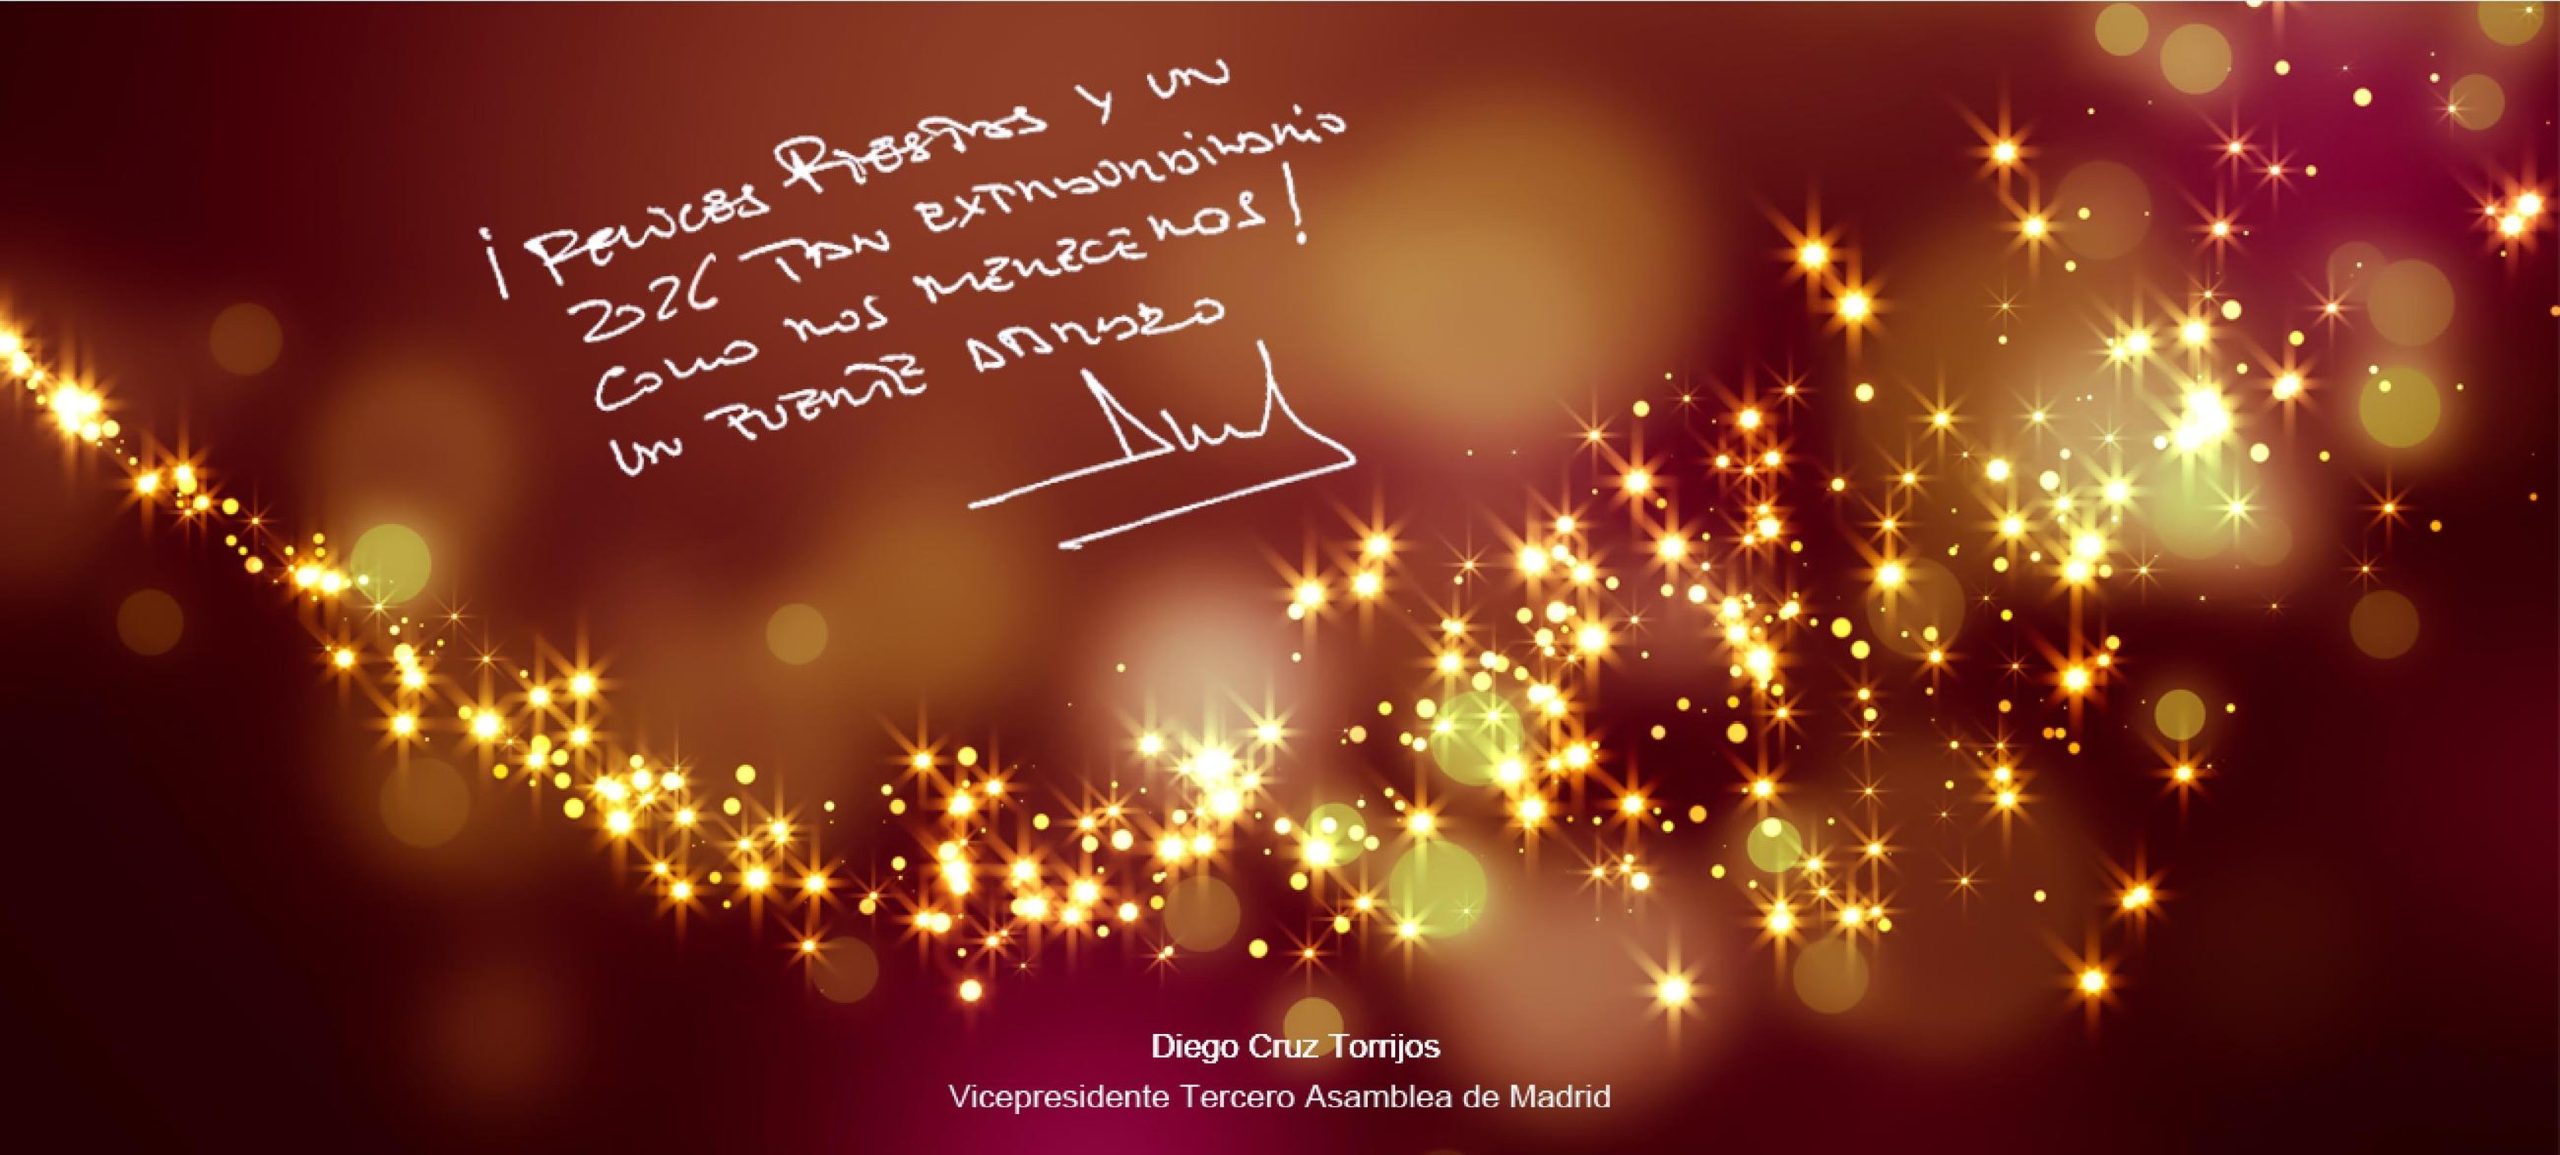 ¡FELICES FIESTAS Y UN
2026 TAN EXTRAORDINARIO
COMO NOS MERECEMOS!
UN FUERTE ABRAZO
Diego Cruz Torrijos
Vicepresidente Tercero Asamblea de Madrid